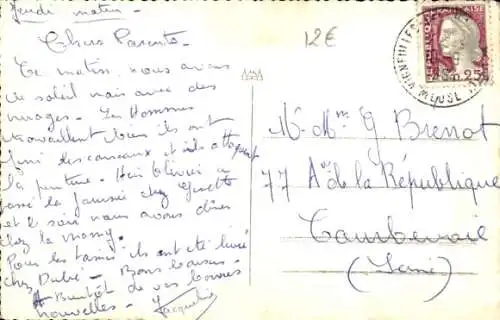 Jeudi matin -
Chers Parents -
Ce matin, nous avons
le soleil mais avec des
nuages - Les Hommes
travaillent bien ils ont
fini des carreaux et ils attaquent
la peinture - Hier
la journée chez Ginette
et le soir nous avons dîner
chez la mamy -
Pour les ils ont été livré
chez - Bons baisers -
A Bientôt de vos bonnes
nouvelles - Jacqueline
12€
REPUBLIQUE FRANÇAISE
0.25
VIGNEULLES
MEUSE
M. Mme G. Brenot
77 Av. de la République
Courbevoie
(Seine)